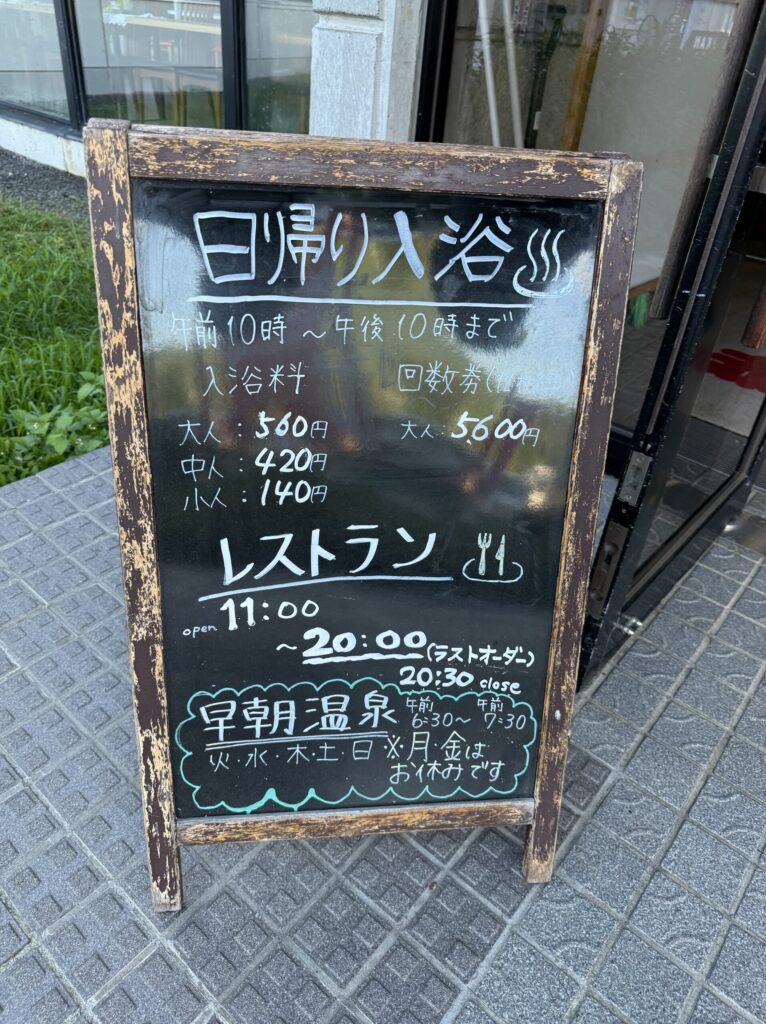 日帰り入浴
午前10時 ~ 午後10時まで
入浴料
大人:560円
中人:420円
小人:140円
回数券
大人:5600円
レストラン
open 11:00
~20:00(ラストオーダー)
20:30 close
早朝温泉 午前6:30~午前7:30
火・水・木・土・日 ※月・金は
お休みです